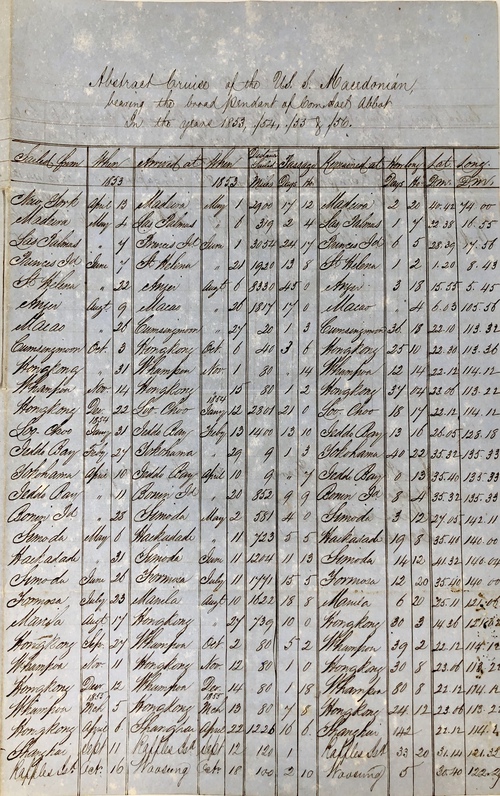 Abstract Cruise of the U.S. S. Macedonian,
bearing the broad pendant of Com. Abbot
In the years 1853, /54, /55 & /56.
Sailed from When Arrived at When Distance Passage Remained at How long Lat. Long.
1853 1853 Miles Days Hr. Days Hr.
New York April 13 Madeira May 1 2900 17 12 Madeira 2 20 40.42 74 00
Madeira May 4 Las Palmas " 6 319 2 4 Las Palmas 1 7 32.38 16.55
Las Palmas " 7 Princes Isd June 1 3034 24 17 Princes Isd 6 5 28.29 17.58
Princes Isd June 7 St Helena " 21 1920 13 8 St Helena 1 2 1.20 8.43
St Helena " 22 Anjer Augt 6 8330 45 0 Anjer 3 18 15.55 5.45
Anjer Augt. 9 Macao " 26 1817 17 0 Macao " 4 6.03 105.58
Macao " 26 Cumsingmoon " 27 20 1 3 Cumsingmoon 36 18 22.10 113.32
Cumsingmoon Oct. 3 Hongkong Oct. 6 40 3 6 Hongkong 25 10 22.30 113.36
Hongkong " 31 Whampoa Nov. 1 80 14 Whampoa 12 14 22.12 114.12
Whampoa Nov. 14 Hongkong " 15 80 1 2 Hongkong 37 04 23.06 113.22
1854
Hongkong Dec. 22 Loo Choo Jany 12 2301 21 0 Loo Choo 18 17 22.12 114.12
1854
Loo Choo Jany 31 Jeddo Bay Feby 13 1400 13 10 Jeddo Bay 13 16 26.05 128.18
Jeddo Bay Feby 27 Yokohama " 29 9 1 3 Yokohama 40 22 35.32 135.33
Yokohama April 10 Jeddo Bay April 10 9 " 7 Jeddo Bay 0 13 35.40 135.33
Jeddo Bay " 11 Bonin Isd " 20 852 9 9 Bonin Isd 8 4 35.32 135.33
Bonin Isd " 28 Simoda May 2 581 4 0 Simoda 3 12 27.05 142.11
Simoda May 6 Hackadadi " 11 723 5 5 Hackadadi 19 8 35.41 140.00
Hackadadi " 31 Simoda June 11 1204 11 13 Simoda 14 12 41.32 140.04
Simoda June 26 Formosa July 11 1771 15 5 Formosa 12 20 35.40 140.00
Formosa July 23 Manila Augt 10 1622 18 8 Manila 6 20 25.11
Manila Augt 17 Hongkong " 27 739 10 0 Hongkong 30 3 14.36
Hongkong Sep. 27 Whampoa Oct 2 80 5 2 Whampoa 39 2 22.12
Whampoa Nov. 11 Hongkong Nov. 12 80 1 0 Hongkong 30 8 23.06
Hongkong Dec. 12 Whampoa Dec. 14 80 1 18 Whampoa 80 8 22.12
1855 1855
Whampoa Mch 5 Hongkong Mch 13 80 7 8 Hongkong 24 12 23.06
Hongkong April 6 Shanghai April 22 1226 10 6 Shanghai 142 22.12
Shanghai Sept 11 Raffles Isd Sept 12 120 1 Raffles Isd 33 20 31.14
Raffles Isd Oct. 16 Woosung Oct 18 100 2 10 Woosung 5 30.40